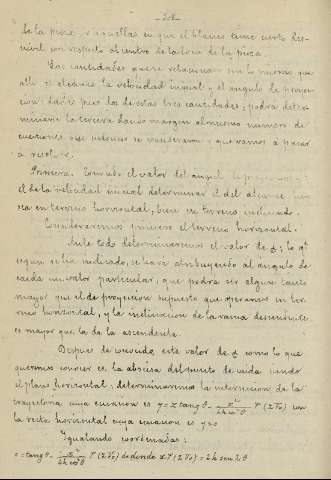 de la pieza, o aquellas en que el blanco tiene cierto des-
nivel con respecto al centro de la boca de la pieza.
Las cantidades que se relacionan son lo mismo que
alli el alcance la velocidad inicial y el angulo de proyec-
cion; dados pues dos de estas tres cantidades, podra deter-
minarse la tercera dando margen al mismo numero de
cuestiones que entonces se consideraron y que vamos á pasar
a resolver.
Primera. Conocido el valor del angulo de proyeccion y
el de la velocidad inicial determinar el del alcance, bien
sea en terreno horizontal, bien en terreno inclinado.
Consideraremos primero el terreno horizontal.
Ante todo determinaremos el valor de α; lo qe
segun se ha indicado, se hará atribuyendo al angulo de
caida un valor particular, que podra ser algun tanto
mayor que el de proyeccion supuesto que operamos en ter-
reno horizontal, y la inclinacion de la rama descendente
es mayor que la de la ascendente.
Despues de conocido este valor de α como lo que
queremos conocer es la abscisa del punto de caida siendo
el plano horizontal, determinaremos la interseccion de la
trayectoria cuya ecuacion es y = x tang θ - x²/4h cos²θ (x, V₀) con
la recta horizontal cuya ecuacion es y=0
Igualando coordenadas;
o = tang θ - x²/4h cos²θ (x, V₀) de donde x (x, V₀) = 2h sen 2θ